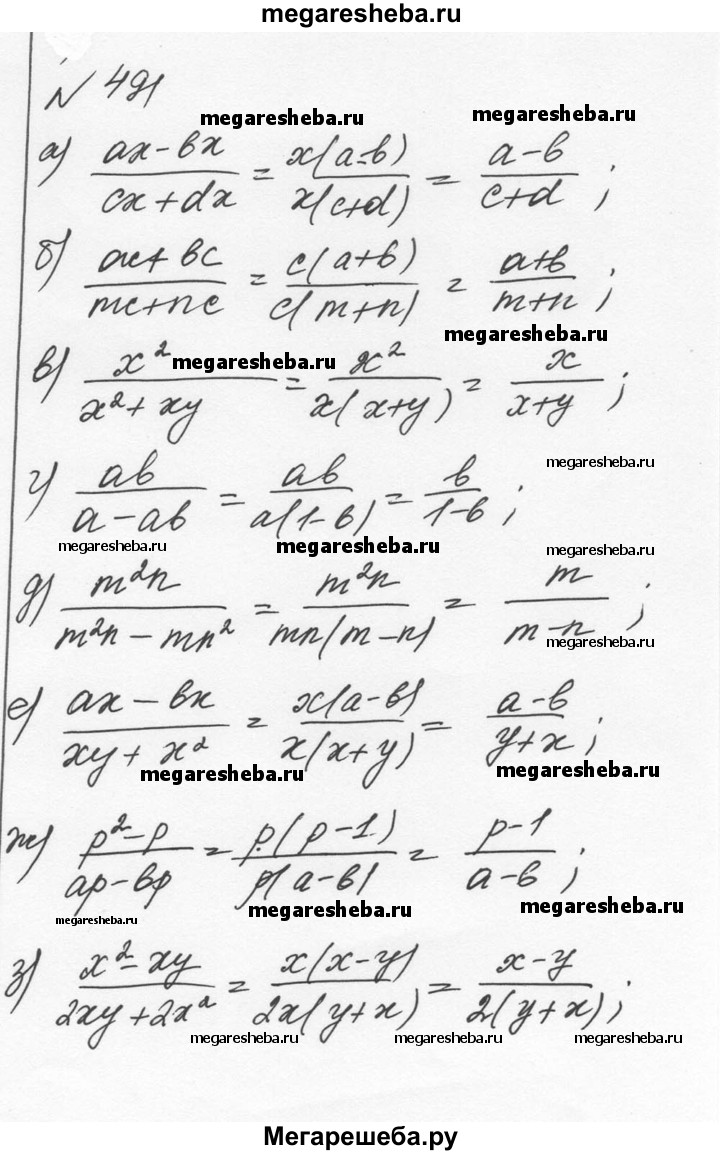 megaresheba.ru
№ 491
megaresheba.ru megaresheba.ru
а) (ax-bx)/(cx+dx) = x(a-b)/x(c+d) = (a-b)/(c+d);
б) (ac+bc)/(mc+nc) = c(a+b)/c(m+n) = (a+b)/(m+n);
megaresheba.ru
megaresheba.ru
в) x²/(x²+xy) = x²/x(x+y) = x/(x+y);
megaresheba.ru
г) ab/(a-ab) = ab/a(1-b) = b/(1-b);
megaresheba.ru megaresheba.ru megaresheba.ru
д) m²n/(m²n-mn²) = m²n/mn(m-n) = m/(m-n);
megaresheba.ru
е) (ax-bx)/(xy+x²) = x(a-b)/x(x+y) = (a-b)/(y+x);
megaresheba.ru megaresheba.ru
ж) (p²-p)/(ap-bp) = p(p-1)/p(a-b) = (p-1)/(a-b);
megaresheba.ru megaresheba.ru megaresheba.ru
з) (x²-xy)/(2xy+2x²) = x(x-y)/2x(y+x) = (x-y)/2(y+x);
megaresheba.ru megaresheba.ru megaresheba.ru
Мегарешеба.ру